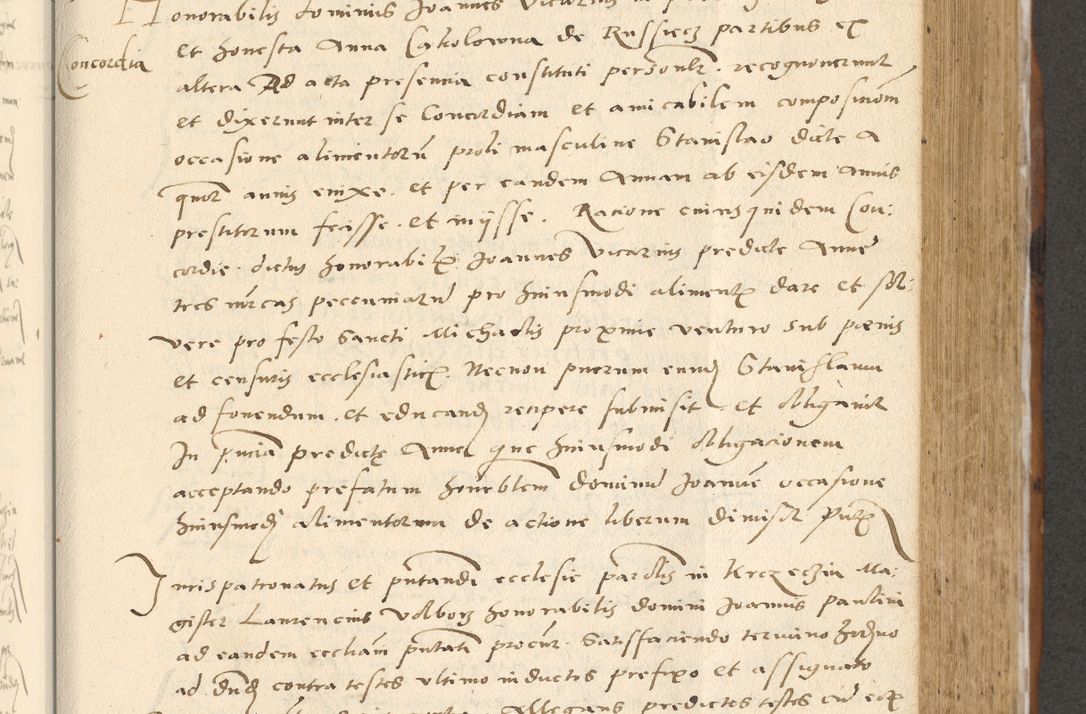 Honorabilis dominus Joannes Vicarius in
Concordia
et honesta Anna Cakolowna de Russiecz partibus ex
altera Ad acta presencia constituti personlr. recognoverunt
et dixerunt inter se Concordiam et amicabilem composicionem
occasione alimentorũ proli masculine Stanislao dicte A
quor annis enixe. et per eandem Annam ab eisdem annis
prestitorum fecisse. et iniisse. Racione cuius quidem Con:
cordie. dictus honorabilis Joannes Vicarius predicte Anne
tres mrcas pecuniarũ pro huiusmodi alimentis dare et sol:
vere pro festo Sancti Michaelis proxime venturo sub penis
et censuris ecclesiasticis. Necnon puerum eund Stanislaum
ad fovendum. et educand recipere submisit et obligavit
In pñcia predicte Anne que huiusmodi obligacionem
acceptando prefatum honrblem dominũ Joannẽ occasione
huiusmodi alimentorum de actione liberum dimisit Pñt
Juris patronatus et pñtandi ecclesie parolis in Krczeczin Ma:
gister Laurencius Volborz honorabilis domini Joannis Paulini
ad eandem eccliam pñtati procur. Satisfaciendo termino hodierno
ad dnd contra testes ultimo inductos prefixo et assignato
Allegans predictos testes cũ